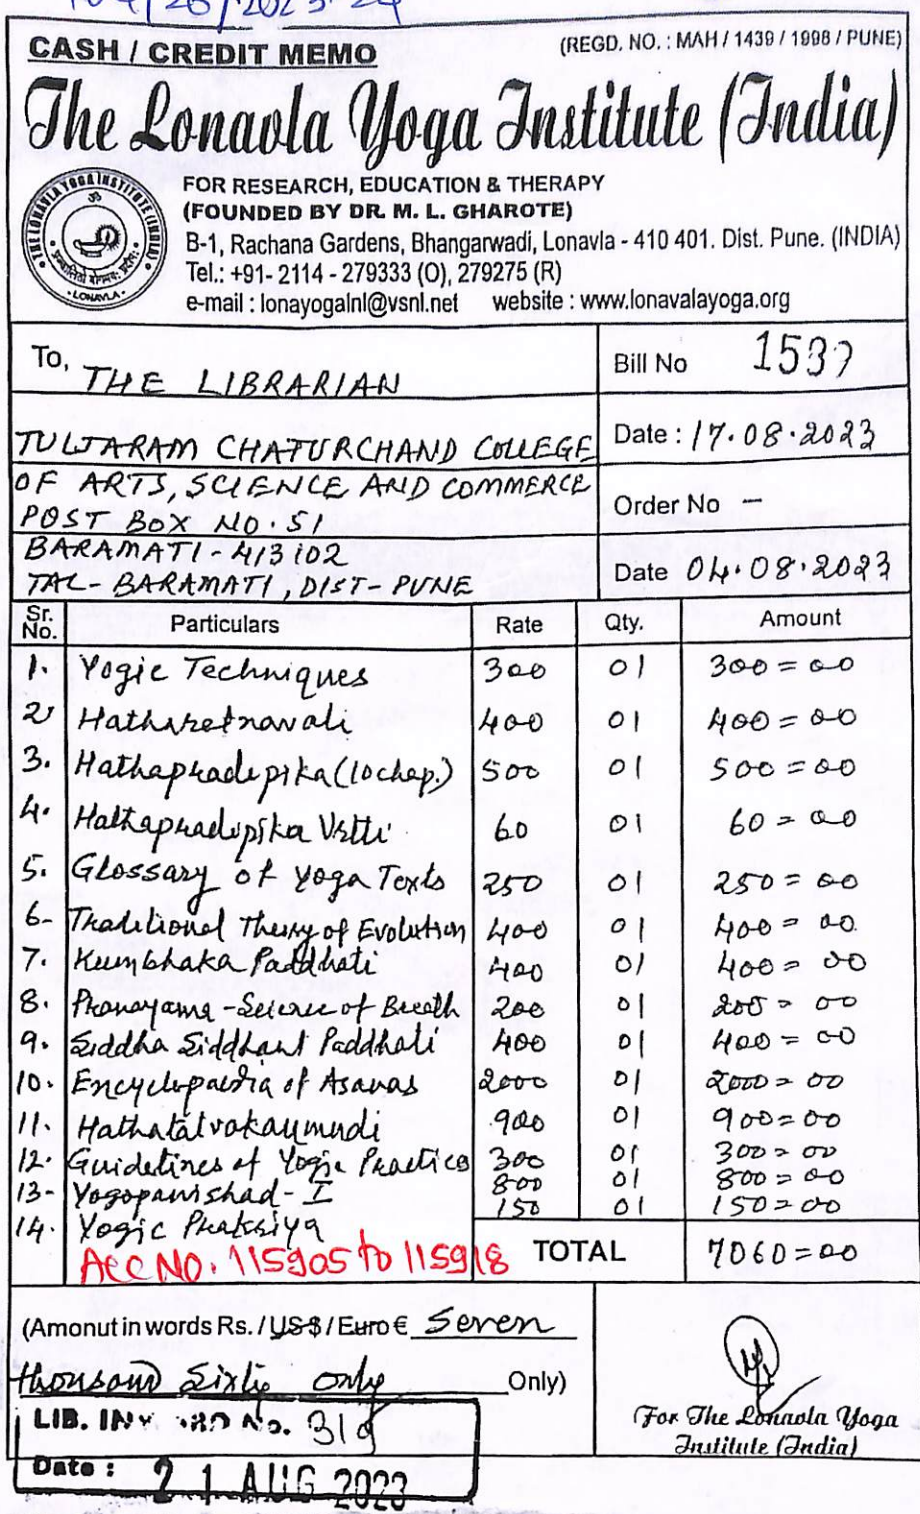 /26/2023-24
CASH / CREDIT MEMO
(REGD. NO. : MAH / 1439 / 1998 / PUNE)
The Lonavla Yoga Institute (India)
THE LONAVLA YOGA INSTITUTE (INDIA)
ॐ
• LONAVLA •
FOR RESEARCH, EDUCATION & THERAPY
(FOUNDED BY DR. M. L. GHAROTE)
B-1, Rachana Gardens, Bhangarwadi, Lonavla - 410 401. Dist. Pune. (INDIA)
Tel.: +91- 2114 - 279333 (O), 279275 (R)
e-mail : lonayogalnl@vsnl.net website : www.lonavalayoga.org
To, THE LIBRARIAN
Bill No 1537
TULJARAM CHATURCHAND COLLEGE
Date : 17.08.2023
OF ARTS, SCIENCE AND COMMERCE
POST BOX NO. 51
Order No —
BARAMATI - 413102
TAL- BARAMATI, DIST- PUNE
Date 04.08.2023
Sr. No. Particulars Rate Qty. Amount
1. Yogic Techniques 300 01 300=00
2. Hatharatnavali 400 01 400=00
3. Hathapradipika (10 chap.) 500 01 500=00
4. Hathapradipika Vrtti 60 01 60=00
5. Glossary of Yoga Texts 250 01 250=00
6- Traditional Theory of Evolution 400 01 400=00
7. Kumbhaka Paddhati 400 01 400=00
8. Pranayama - Science of Breath 200 01 200=00
9. Siddha Siddhant Paddhati 400 01 400=00
10. Encyclopaedia of Asanas 2000 01 2000=00
11. Hathatatvakaumudi 900 01 900=00
12. Guidelines of Yogic Practices 300 01 300=00
13- Yogopanishad - I 800 01 800=00
14. Yogic Prakriya 150 01 150=00
Acc No. 115905 to 115918
TOTAL 7060=00
(Amonut in words Rs. / US $ / Euro € Seven
thousand Sixty only Only)
LIB. INW No. 319
Date : 21 AUG 2023
For The Lonavla Yoga
Institute (India)